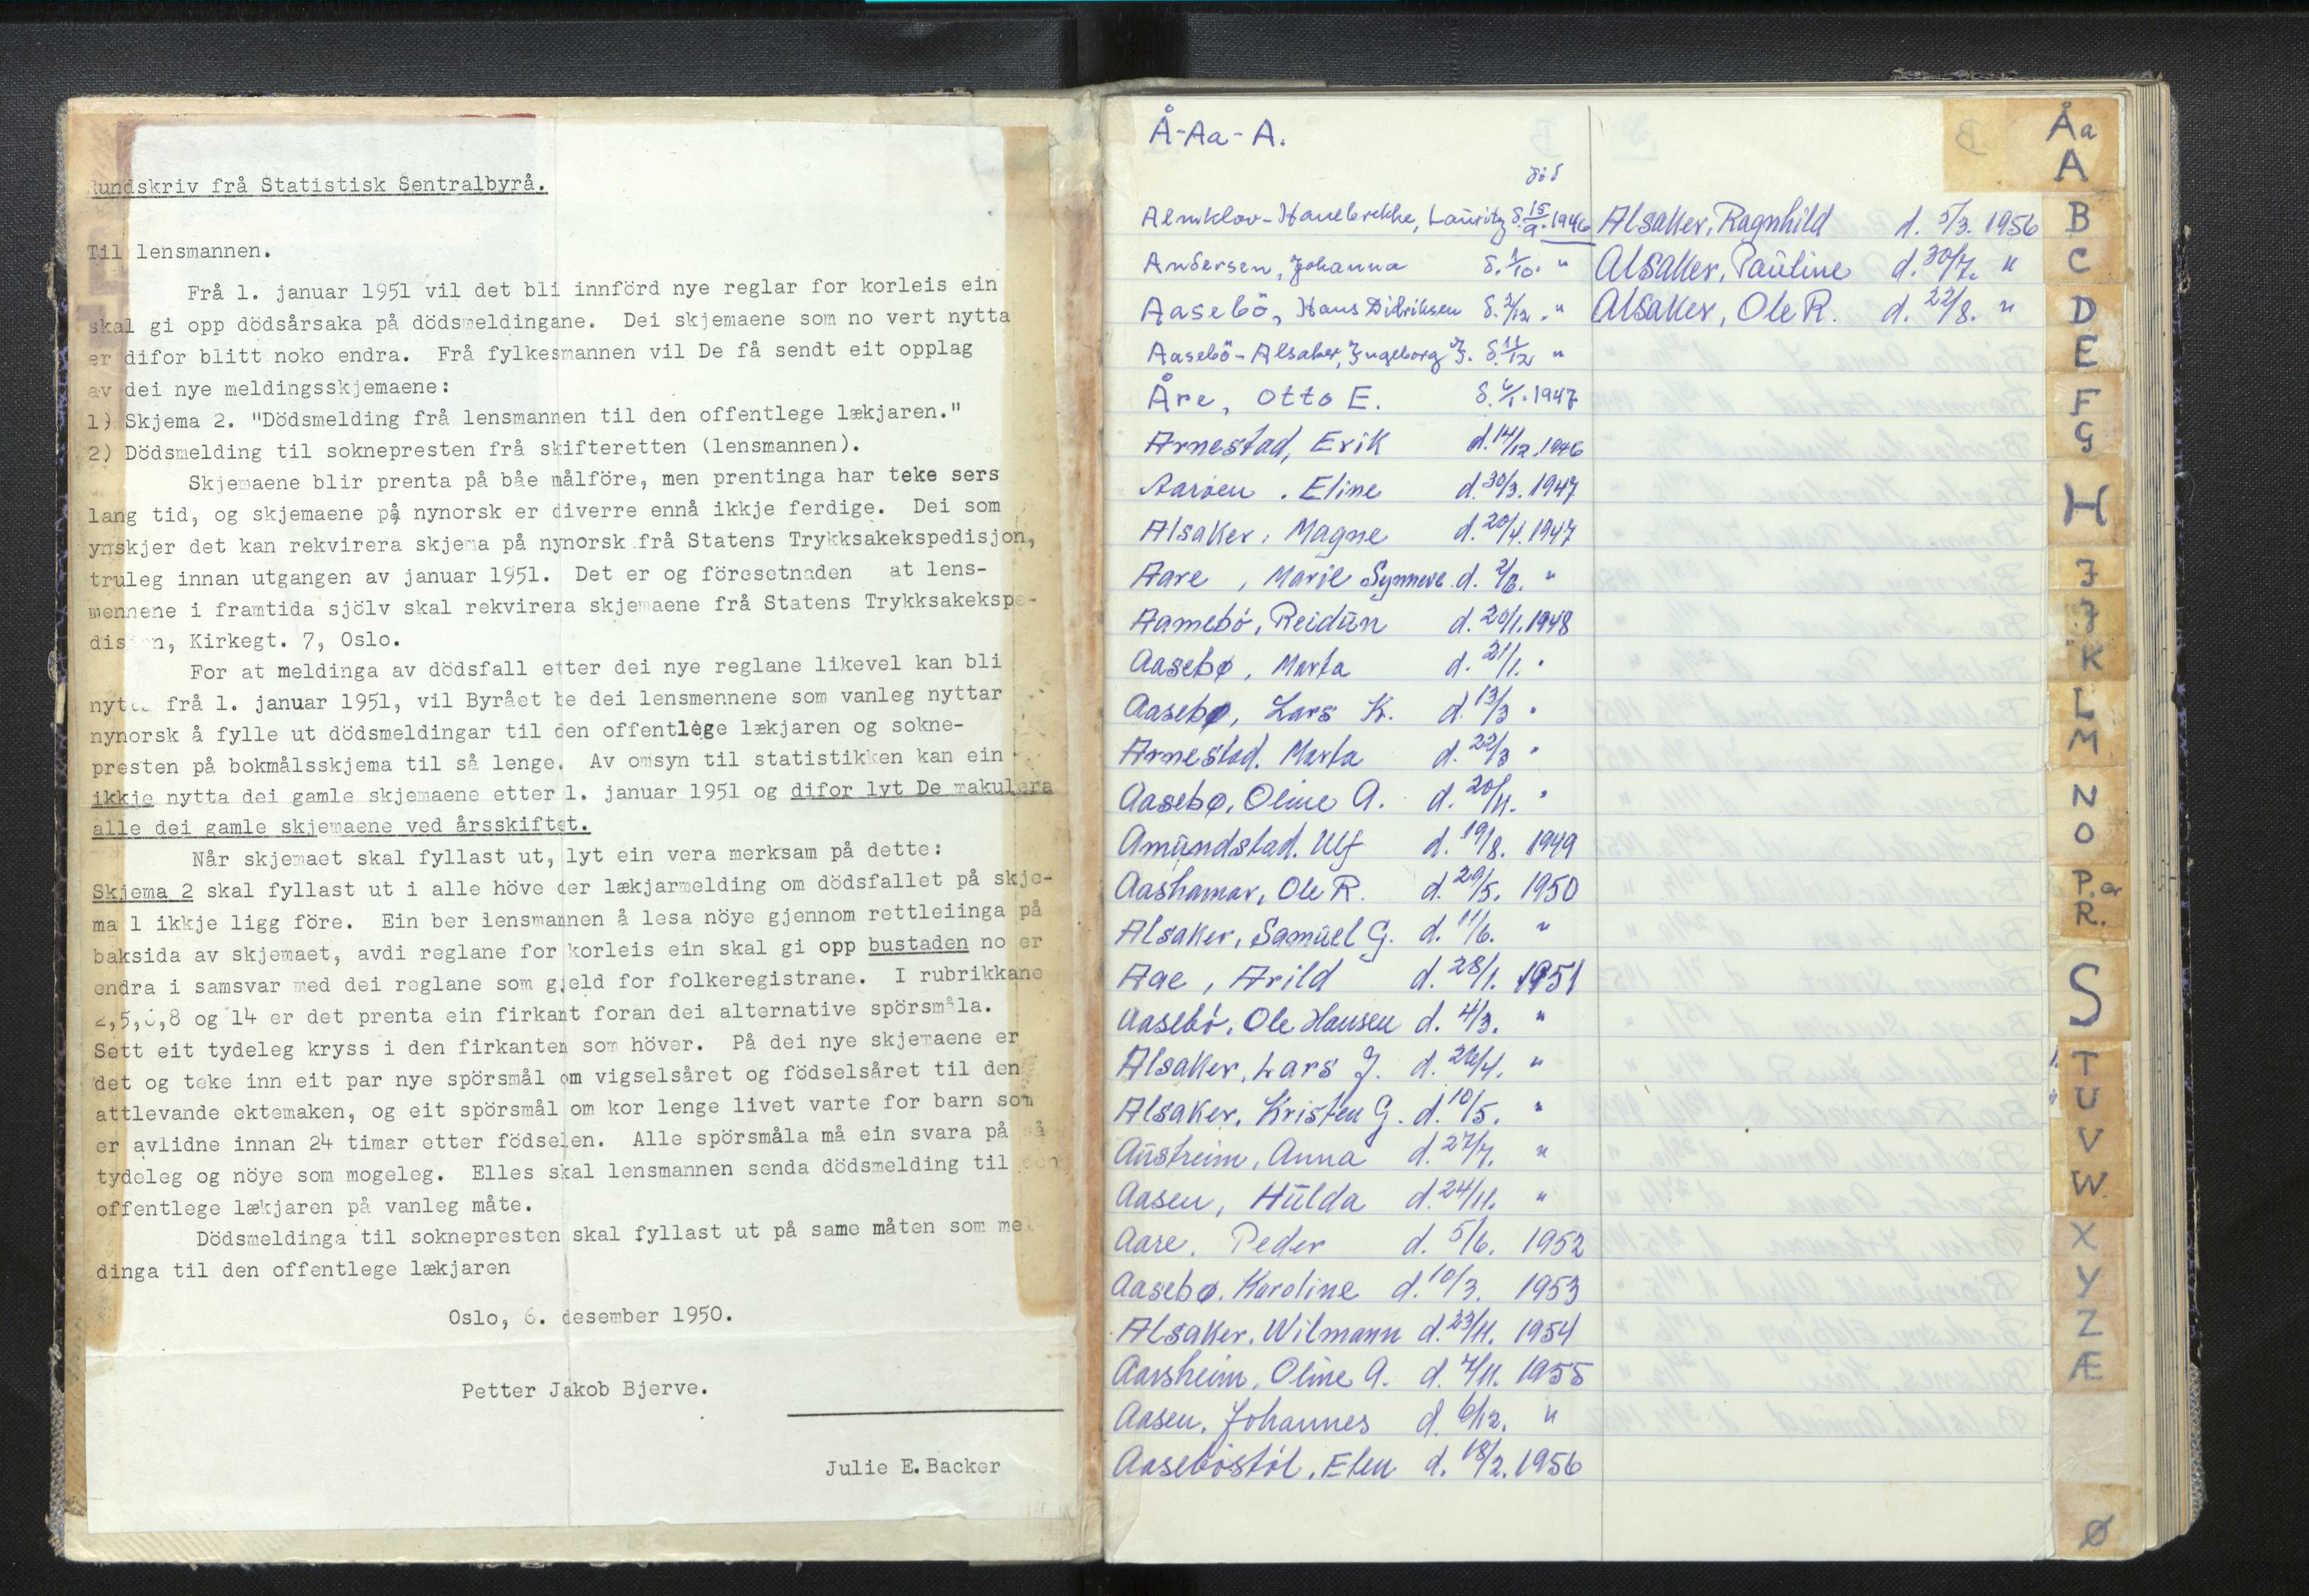 Rundskriv frå Statistisk Sentralbyrå.
Til lensmannen.
Frå 1. januar 1951 vil det bli innförd nye reglar for korleis ein
skal gi opp dödsårsaka på dödsmeldingane. Dei skjemaene som no vert nytta
er difor blitt noko endra. Frå fylkesmannen vil De få sendt eit opplag
av dei nye meldingsskjemaene:
1) Skjema 2. "Dödsmelding frå lensmannen til den offentlege lækjaren."
2) Dödsmelding til soknepresten frå skifteretten (lensmannen).
Skjemaene blir prenta på båe målföre, men prentinga har teke sers
lang tid, og skjemaene på nynorsk er diverre ennå ikkje ferdige. Dei som
ynskjer det kan rekvirera skjema på nynorsk frå Statens Trykksakekspedisjon,
truleg innan utgangen av januar 1951. Det er og föresetnaden at lens-
mennene i framtida sjölv skal rekvirera skjemaene frå Statens Trykksakekspe-
disjon, Kirkegt. 7, Oslo.
For at meldinga av dödsfall etter dei nye reglane likevel kan bli
nytta frå 1. januar 1951, vil Byrået be dei lensmennene som vanleg nyttar
nynorsk å fylle ut dödsmeldingar til den offentlege lækjaren og sokne-
presten på bokmålsskjema til så lenge. Av omsyn til statistikken kan ein
ikkje nytta dei gamle skjemaene etter 1. januar 1951 og difor lyt De makulera
alle dei gamle skjemaene ved årsskiftet.
Når skjemaet skal fyllast ut, lyt ein vera merksam på dette:
Skjema 2 skal fyllast ut i alle höve der lækjarmelding om dödsfallet på skje-
ma 1 ikkje ligg före. Ein ber lensmannen å lesa nöye gjennom rettleiinga på
baksida av skjemaet, avdi reglane for korleis ein skal gi opp bustaden no er
endra i samsvar med dei reglane som gjeld for folkeregistrane. I rubrikkane
2,5,6,8 og 14 er det prenta ein firkant foran dei alternative spörsmåla.
Sett eit tydeleg kryss i den firkanten som höver. På dei nye skjemaene er
det og teke inn eit par nye spörsmål om vigselsåret og födselsåret til den
attlevande ektemaken, og eit spörsmål om kor lenge livet varte for barn som
er avlidne innan 24 timar etter födselen. Alle spörsmåla må ein svara på så
tydeleg og nöye som mogeleg. Elles skal lensmannen senda dödsmelding til den
offentlege lækjaren på vanleg måte.
Dödsmeldinga til soknepresten skal fyllast ut på same måten som mel-
dinga til den offentlege lækjaren
Oslo, 6. desember 1950.
Petter Jakob Bjerve.
Julie E. Backer
Å-Aa-A.
död
Almklov-Hauebrekke, Lauritz d. 15/9. 1946
Andersen, Johanna d. 1/10. "
Aasebö, Hans Didriksen d. 2/12. "
Aasebö-Alsaker, Ingeborg J. d. 11/12 "
Åre, Otto E. d. 6/1. 1947
Arnestad, Erik d. 14/12. 1946
Aarøen. Eline d. 30/3. 1947
Alsaker, Magne d. 20/4. 1947
Aare, Marie Synneve d. 2/8. "
Aamebö, Reidun d. 20/1. 1948
Aasebø, Marta d. 21/1. "
Aasebø, Lars K. d. 13/3 "
Arnestad. Marta d. 22/3 "
Aasebø, Oline A. d. 20/11. "
Amundstad. Ulf d. 19/8. 1949
Aashamar, Ole R. d. 29/5. 1950
Alsaker, Samuel G. d. 11/6. "
Aae, Arild d. 28/1. 1951
Aasebö, Ole Hansen d. 4/3. "
Alsaker, Lars J. d. 26/4. "
Alsaker, Kristen G. d. 10/5. "
Austreim, Anna d. 27/7. "
Aasen, Hulda d. 24/11. "
Aare. Peder d. 5/6. 1952
Aasebø. Karoline d. 10/3. 1953
Alsaker. Wilmann d. 23/11. 1954
Aarsheim, Oline A. d. 7/11. 1955
Aasen, Johannes d. 6/12. "
Aasebøstøl, Elen d. 18/2. 1956
Alsaker, Ragnhild d. 5/3. 1956
Alsaker, Pauline d. 30/7. "
Alsaker, Ole R. d. 22/8. "
Åa
A
B
C
D
E
F
G
H
I
J
K
L
M
N
O
P. Q
R.
S
T
U
V
W.
X
Y
Z
Æ
Ø